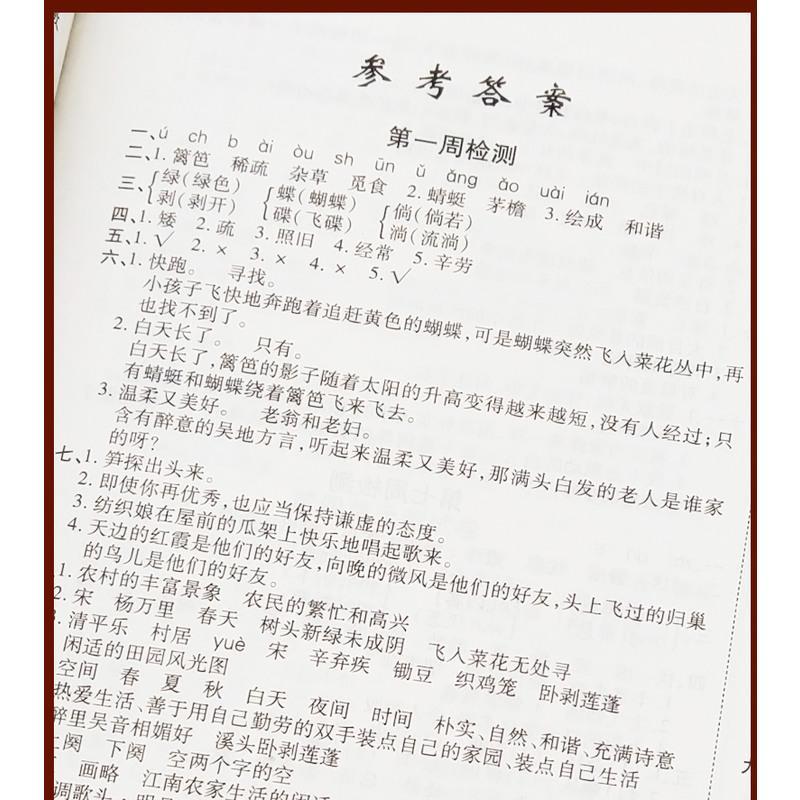 参考答案
第一周检测
一、ú ch b ài òu sh ūn ǔ ǎng ǎo uài ián
二、1. 篱笆 稀疏 杂草 觅食 2. 蜻蜓 茅檐 3. 绘成 和谐
三、绿(绿色) 蝶(蝴蝶) 倘(倘若)
剥(剥开) 碟(飞碟) 淌(流淌)
四、1. 矮 2. 疏 3. 照旧 4. 经常 5. 辛劳
五、1. √ 2. × 3. × 4. × 5. √
六、1. 快跑。 寻找。
小孩子飞快地奔跑着追赶黄色的蝴蝶,可是蝴蝶突然飞入菜花丛中,再
也找不到了。
2. 白天长了。 只有。
白天长了,篱笆的影子随着太阳的升高变得越来越短,没有人经过;只
有蜻蜓和蝴蝶绕着篱笆飞来飞去。
3. 温柔又美好。 老翁和老妇。
含有醉意的吴地方言,听起来温柔又美好,那满头白发的老人是谁家
的呀?
七、1. 笋探出头来。
2. 即使你再优秀,也应当保持谦虚的态度。
3. 纺织娘在屋前的瓜架上快乐地唱起歌来。
4. 天边的红霞是他们的好友,向晚的微风是他们的好友,头上飞过的归巢
的鸟儿是他们的好友。
1. 农村的丰富景象 农民的繁忙和高兴
2. 宋 杨万里 春天 树头新绿未成阴 飞入菜花无处寻
3. 清平乐 村居 yuè 宋 辛弃疾 锄豆 织鸡笼 卧剥莲蓬
闲适的田园风光图
空间 春 夏 秋 白天 夜间 时间 朴实、自然、和谐、充满诗意
热爱生活、善于用自己勤劳的双手装点自己的家园、装点自己生活
醉里吴音相媚好 溪头卧剥莲蓬
上阕 下阕 空两个字的空
画略 江南农家生活的闲适
调歌头·明月